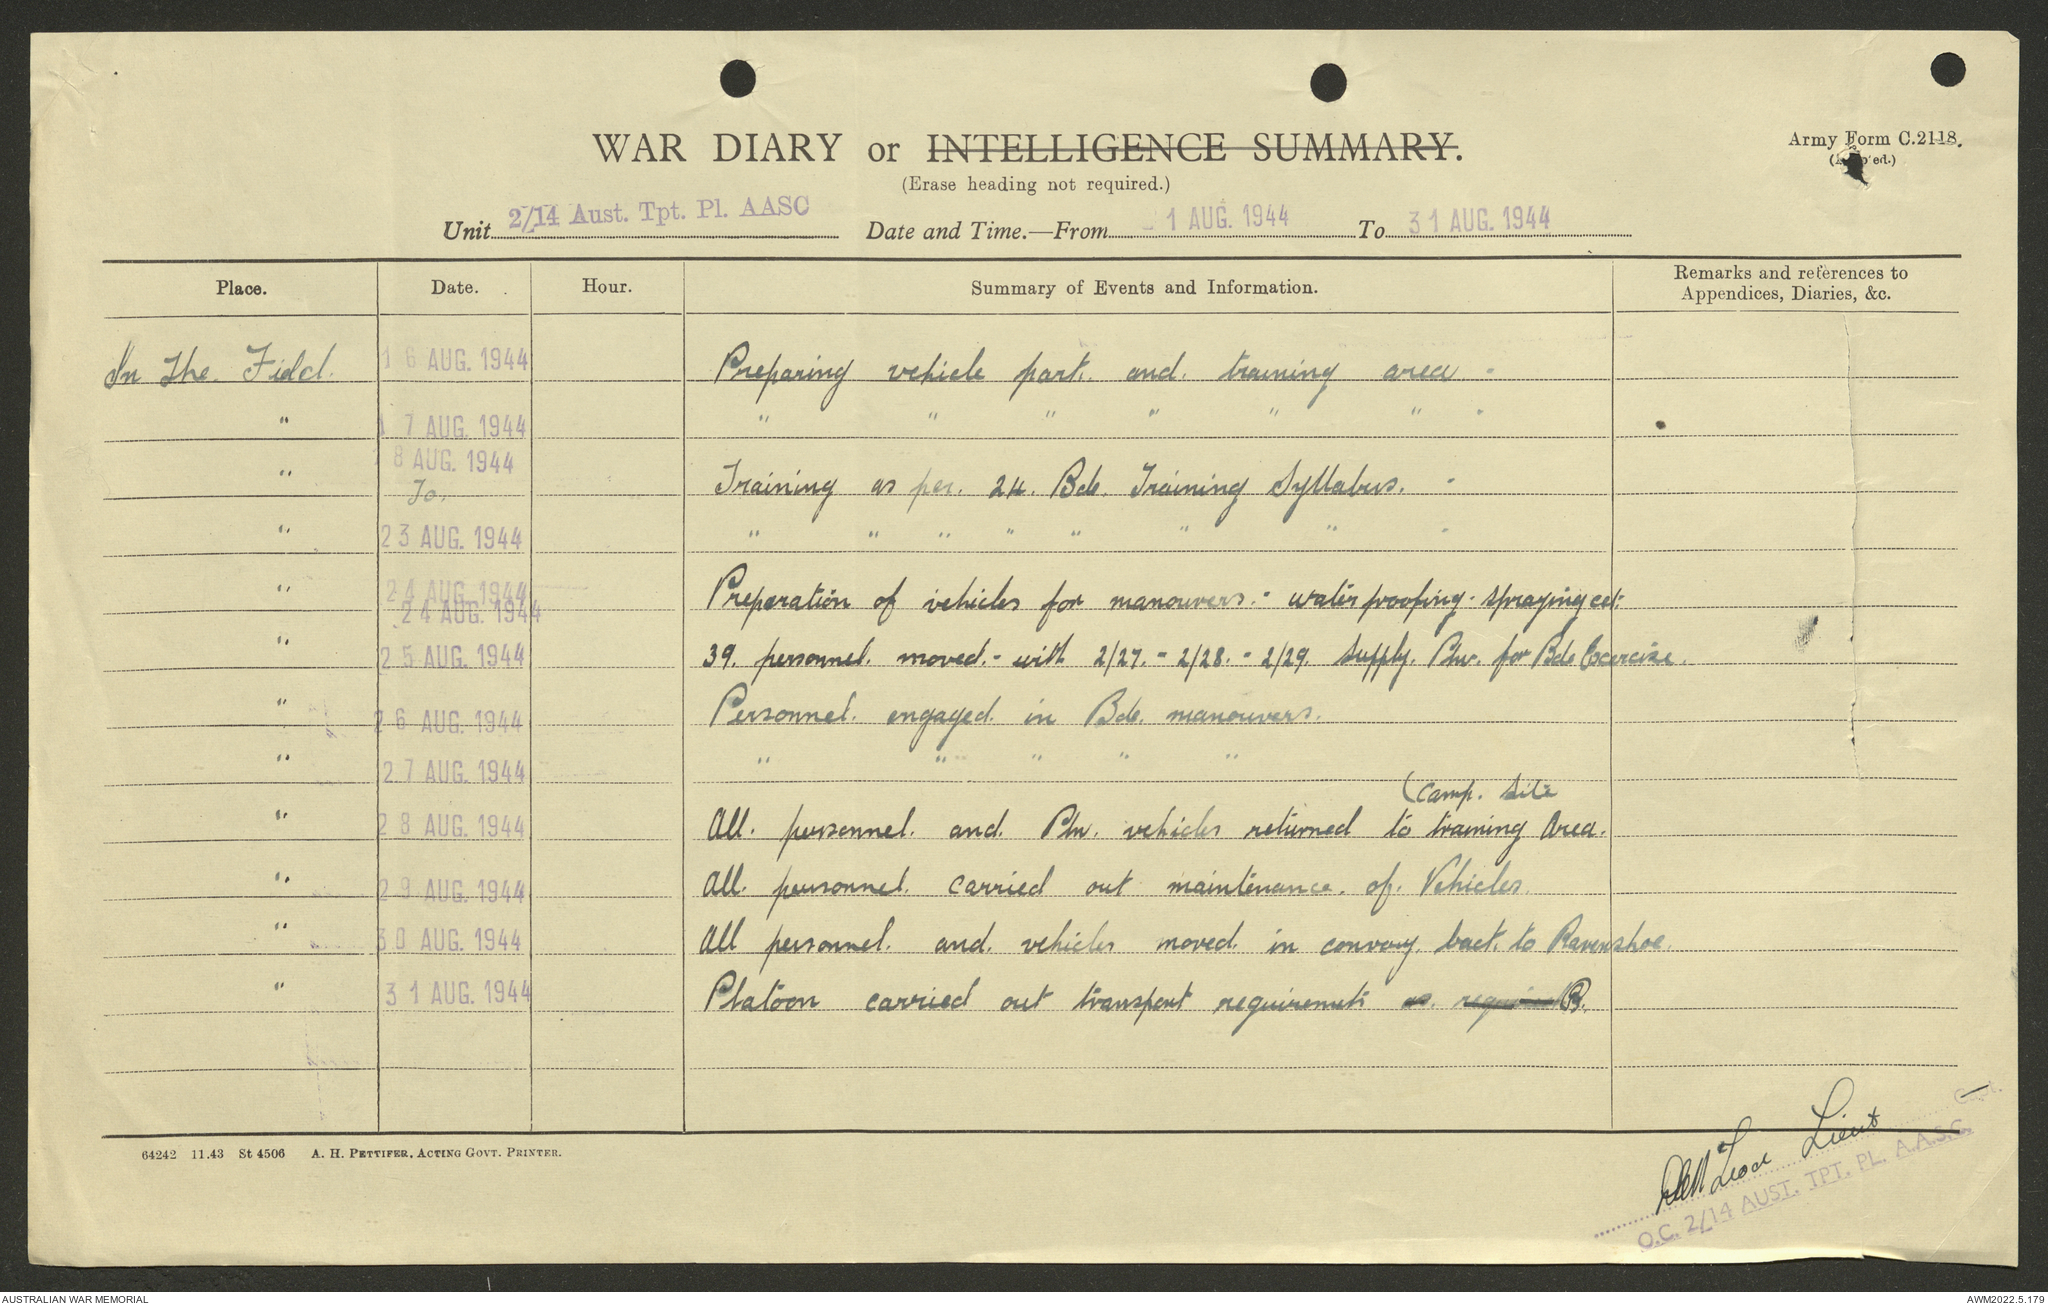 WAR DIARY or INTELLIGENCE SUMMARY.
(Erase heading not required.)
Army Form C.2118.
Unit 2/14 Aust. Tpt. Pl. AASC Date and Time.—From 1 AUG. 1944 To 31 AUG. 1944
Place. Date. Hour. Summary of Events and Information. Remarks and references to Appendices, Diaries, &c.
In The Field. 16 AUG. 1944 Preparing vehicle park. and. training area -
" 17 AUG. 1944 " " " " " " "
" 18 AUG. 1944
To. Training as per. 24. Bde. Training Syllabus. -
" 23 AUG. 1944 " " " " " " " "
" 24 AUG. 1944
24 AUG. 1944 Preparation of vehicles for manouvers. - waterproofing - spraying ect:
" 25 AUG. 1944 39. personnel. moved. - with 2/27. - 2/28. - 2/29. Supply. Pln. for Bde Exercise.
" 26 AUG. 1944 Personnel. engaged. in Bde. manouvers.
" 27 AUG. 1944 " " " " "
(camp. site
" 28 AUG. 1944 All. personnel. and. Pln. vehicles returned to training Area.
" 29 AUG. 1944 All. personnel. carried out maintenance. of. Vehicles.
" 30 AUG. 1944 All personnel. and. vehicles moved. in convoy. back. to Ravenshoe.
" 31 AUG. 1944 Platoon carried out transport requirements as. required
64242 11.43 St 4506 A. H. PETTIFER, ACTING GOVT. PRINTER.
Lieut
O.C. 2/14 AUST. TPT. PL. A.A.S.C.
AUSTRALIAN WAR MEMORIAL
AWM2022.5.179